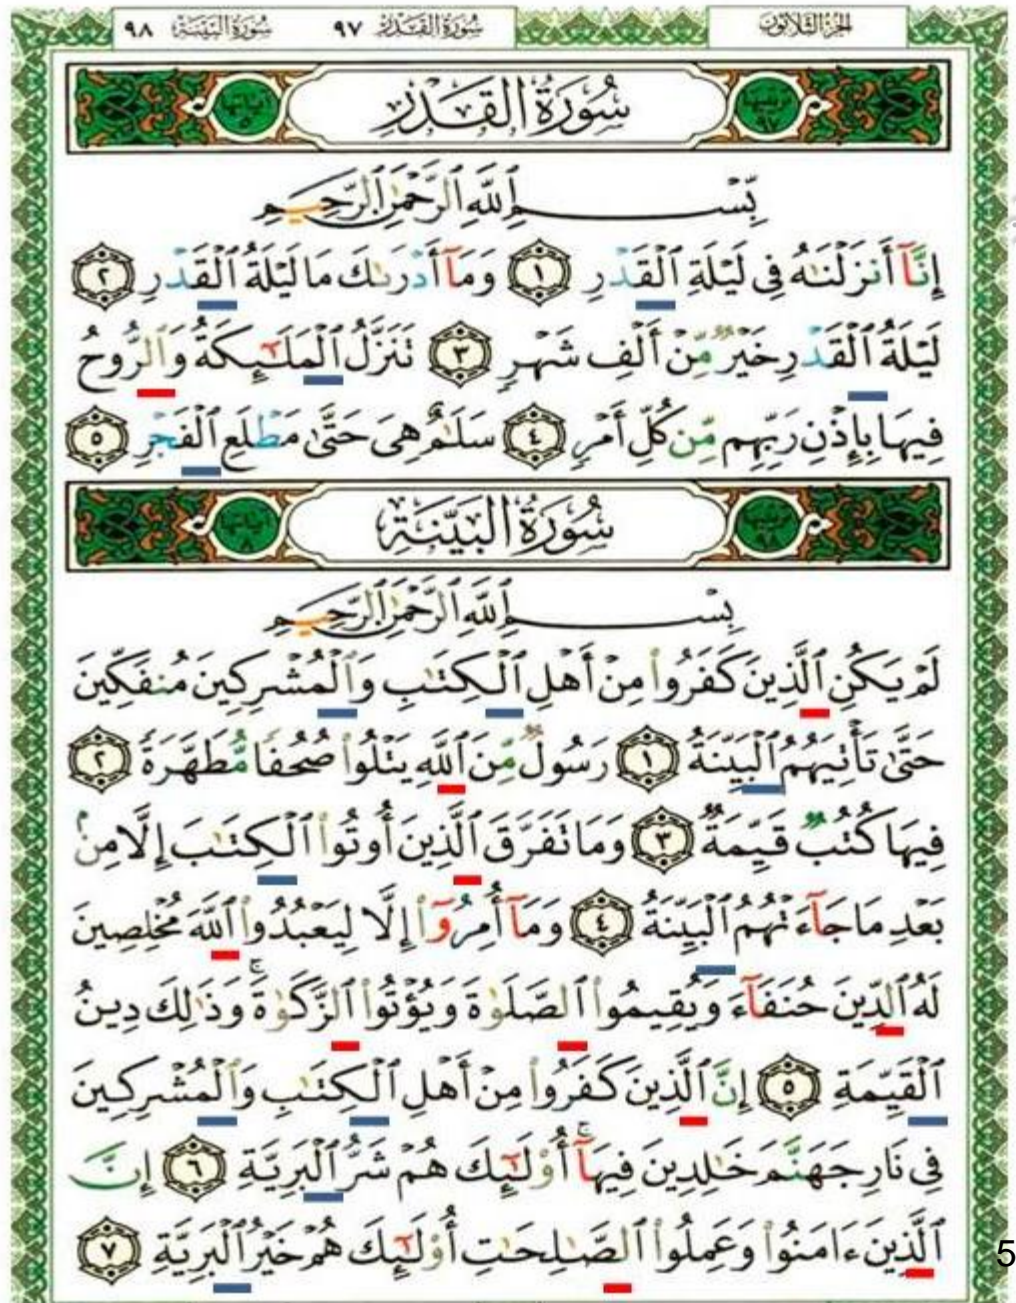 الجزء الثلاثون سورة القدر ٩٧ سورة البينة ٩٨
سُورَةُ القَدْرِ
بِّسْمِ ٱللَّهِ ٱلرَّحْمَٰنِ ٱلرَّحِيمِ
إِنَّآ أَنزَلْنَٰهُ فِى لَيْلَةِ ٱلْقَدْرِ ١ وَمَآ أَدْرَىٰكَ مَا لَيْلَةُ ٱلْقَدْرِ ٢
لَيْلَةُ ٱلْقَدْرِ خَيْرٌ مِّنْ أَلْفِ شَهْرٍ ٣ تَنَزَّلُ ٱلْمَلَٰٓئِكَةُ وَٱلرُّوحُ
فِيهَا بِإِذْنِ رَبِّهِم مِّن كُلِّ أَمْرٍ ٤ سَلَٰمٌ هِىَ حَتَّىٰ مَطْلَعِ ٱلْفَجْرِ ٥
سُورَةُ البَيِّنَةِ
بِسْمِ ٱللَّهِ ٱلرَّحْمَٰنِ ٱلرَّحِيمِ
لَمْ يَكُنِ ٱلَّذِينَ كَفَرُوا۟ مِنْ أَهْلِ ٱلْكِتَٰبِ وَٱلْمُشْرِكِينَ مُنفَكِّينَ
حَتَّىٰ تَأْتِيَهُمُ ٱلْبَيِّنَةُ ١ رَسُولٌ مِّنَ ٱللَّهِ يَتْلُوا۟ صُحُفًا مُّطَهَّرَةً ٢
فِيهَا كُتُبٌ قَيِّمَةٌ ٣ وَمَا تَفَرَّقَ ٱلَّذِينَ أُوتُوا۟ ٱلْكِتَٰبَ إِلَّا مِنۢ
بَعْدِ مَا جَآءَتْهُمُ ٱلْبَيِّنَةُ ٤ وَمَآ أُمِرُوٓا۟ إِلَّا لِيَعْبُدُوا۟ ٱللَّهَ مُخْلِصِينَ
لَهُ ٱلدِّينَ حُنَفَآءَ وَيُقِيمُوا۟ ٱلصَّلَوٰةَ وَيُؤْتُوا۟ ٱلزَّكَوٰةَ ۚ وَذَٰلِكَ دِينُ
ٱلْقَيِّمَةِ ٥ إِنَّ ٱلَّذِينَ كَفَرُوا۟ مِنْ أَهْلِ ٱلْكِتَٰبِ وَٱلْمُشْرِكِينَ
فِى نَارِ جَهَنَّمَ خَٰلِدِينَ فِيهَآ ۚ أُو۟لَٰٓئِكَ هُمْ شَرُّ ٱلْبَرِيَّةِ ٦ إِنَّ
ٱلَّذِينَ ءَامَنُوا۟ وَعَمِلُوا۟ ٱلصَّٰلِحَٰتِ أُو۟لَٰٓئِكَ هُمْ خَيْرُ ٱلْبَرِيَّةِ ٧
5